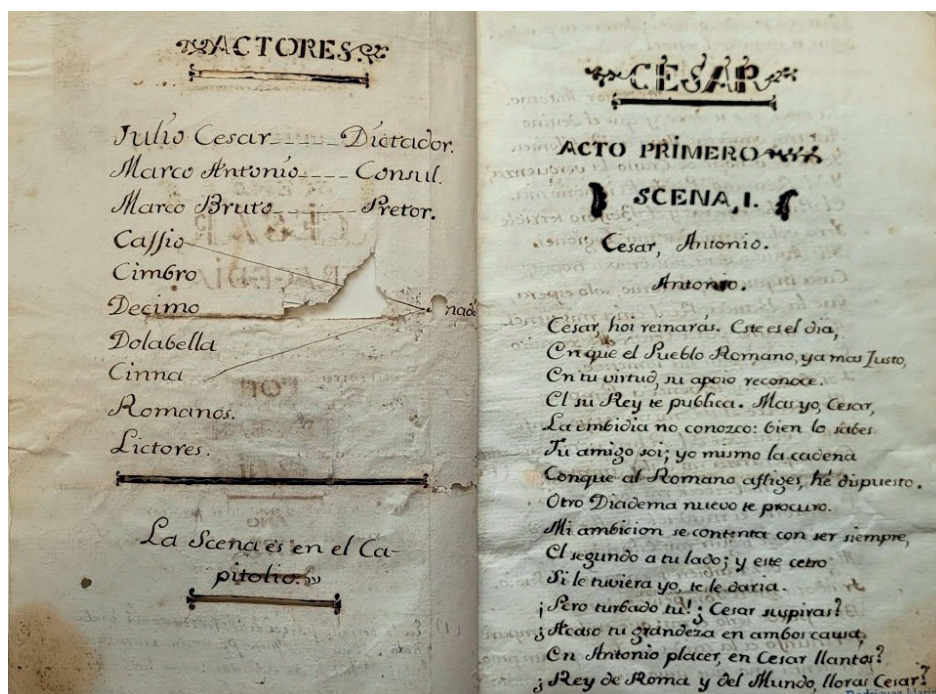 ACTORES.
Julio Cesar_____Dictador.
Marco Antonio____Consul.
Marco Bruto_____Pretor.
Cassio
Cimbro
Decimo
nad
Dolabella
Cinna
Romanos.
Lictores.
La Scena es en el Ca-
pitolio.
CESAR
ACTO PRIMERO
SCENA, I.
Cesar, Antonio.
Antonio.
Cesar, hoi reinarás. Este es el dia,
En que el Pueblo Romano, ya mas Justo,
En tu virtud, su apoio reconoce.
El su Rey te publica. Mas yo, Cesar,
La embidia no conozco: bien lo sabes
Tu amigo soi; yo mismo la cadena
Conque al Romano afliges, hé dispuesto.
Otro Diadema nuevo te procuro.
Mi ambicion se contenta con ser siempre,
El segundo a tu lado; y este cetro
Si le tuviera yo, te le daria.
¡Pero turbado tu! ¿Cesar suspiras?
¿Acaso tu grandeza en ambos causa,
En Antonio placer, en Cesar llantos?
¿Rey de Roma y del Mundo, lloras Cesar?